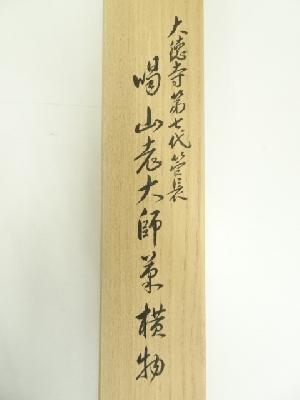 大徳寺第七代管長
喝山老大師筆横物